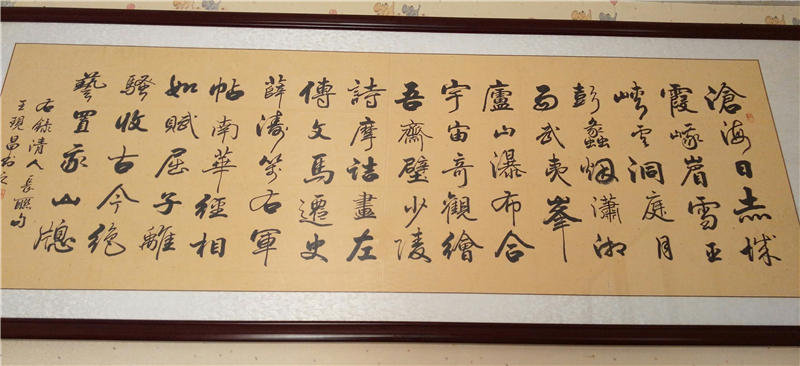 滄海日赤城
霞峨眉雪巫
峡云洞庭月
彭蠡烟瀟湘
雨武夷峯
廬山瀑布合
宇宙奇觀繪
吾齋壁少陵
詩摩詰畫左
傳文馬遷史
薛濤箋右軍
帖南華經相
如賦屈子離
騷收古今絕
藝置我山牕
右錄清人長聯句
王現昌書